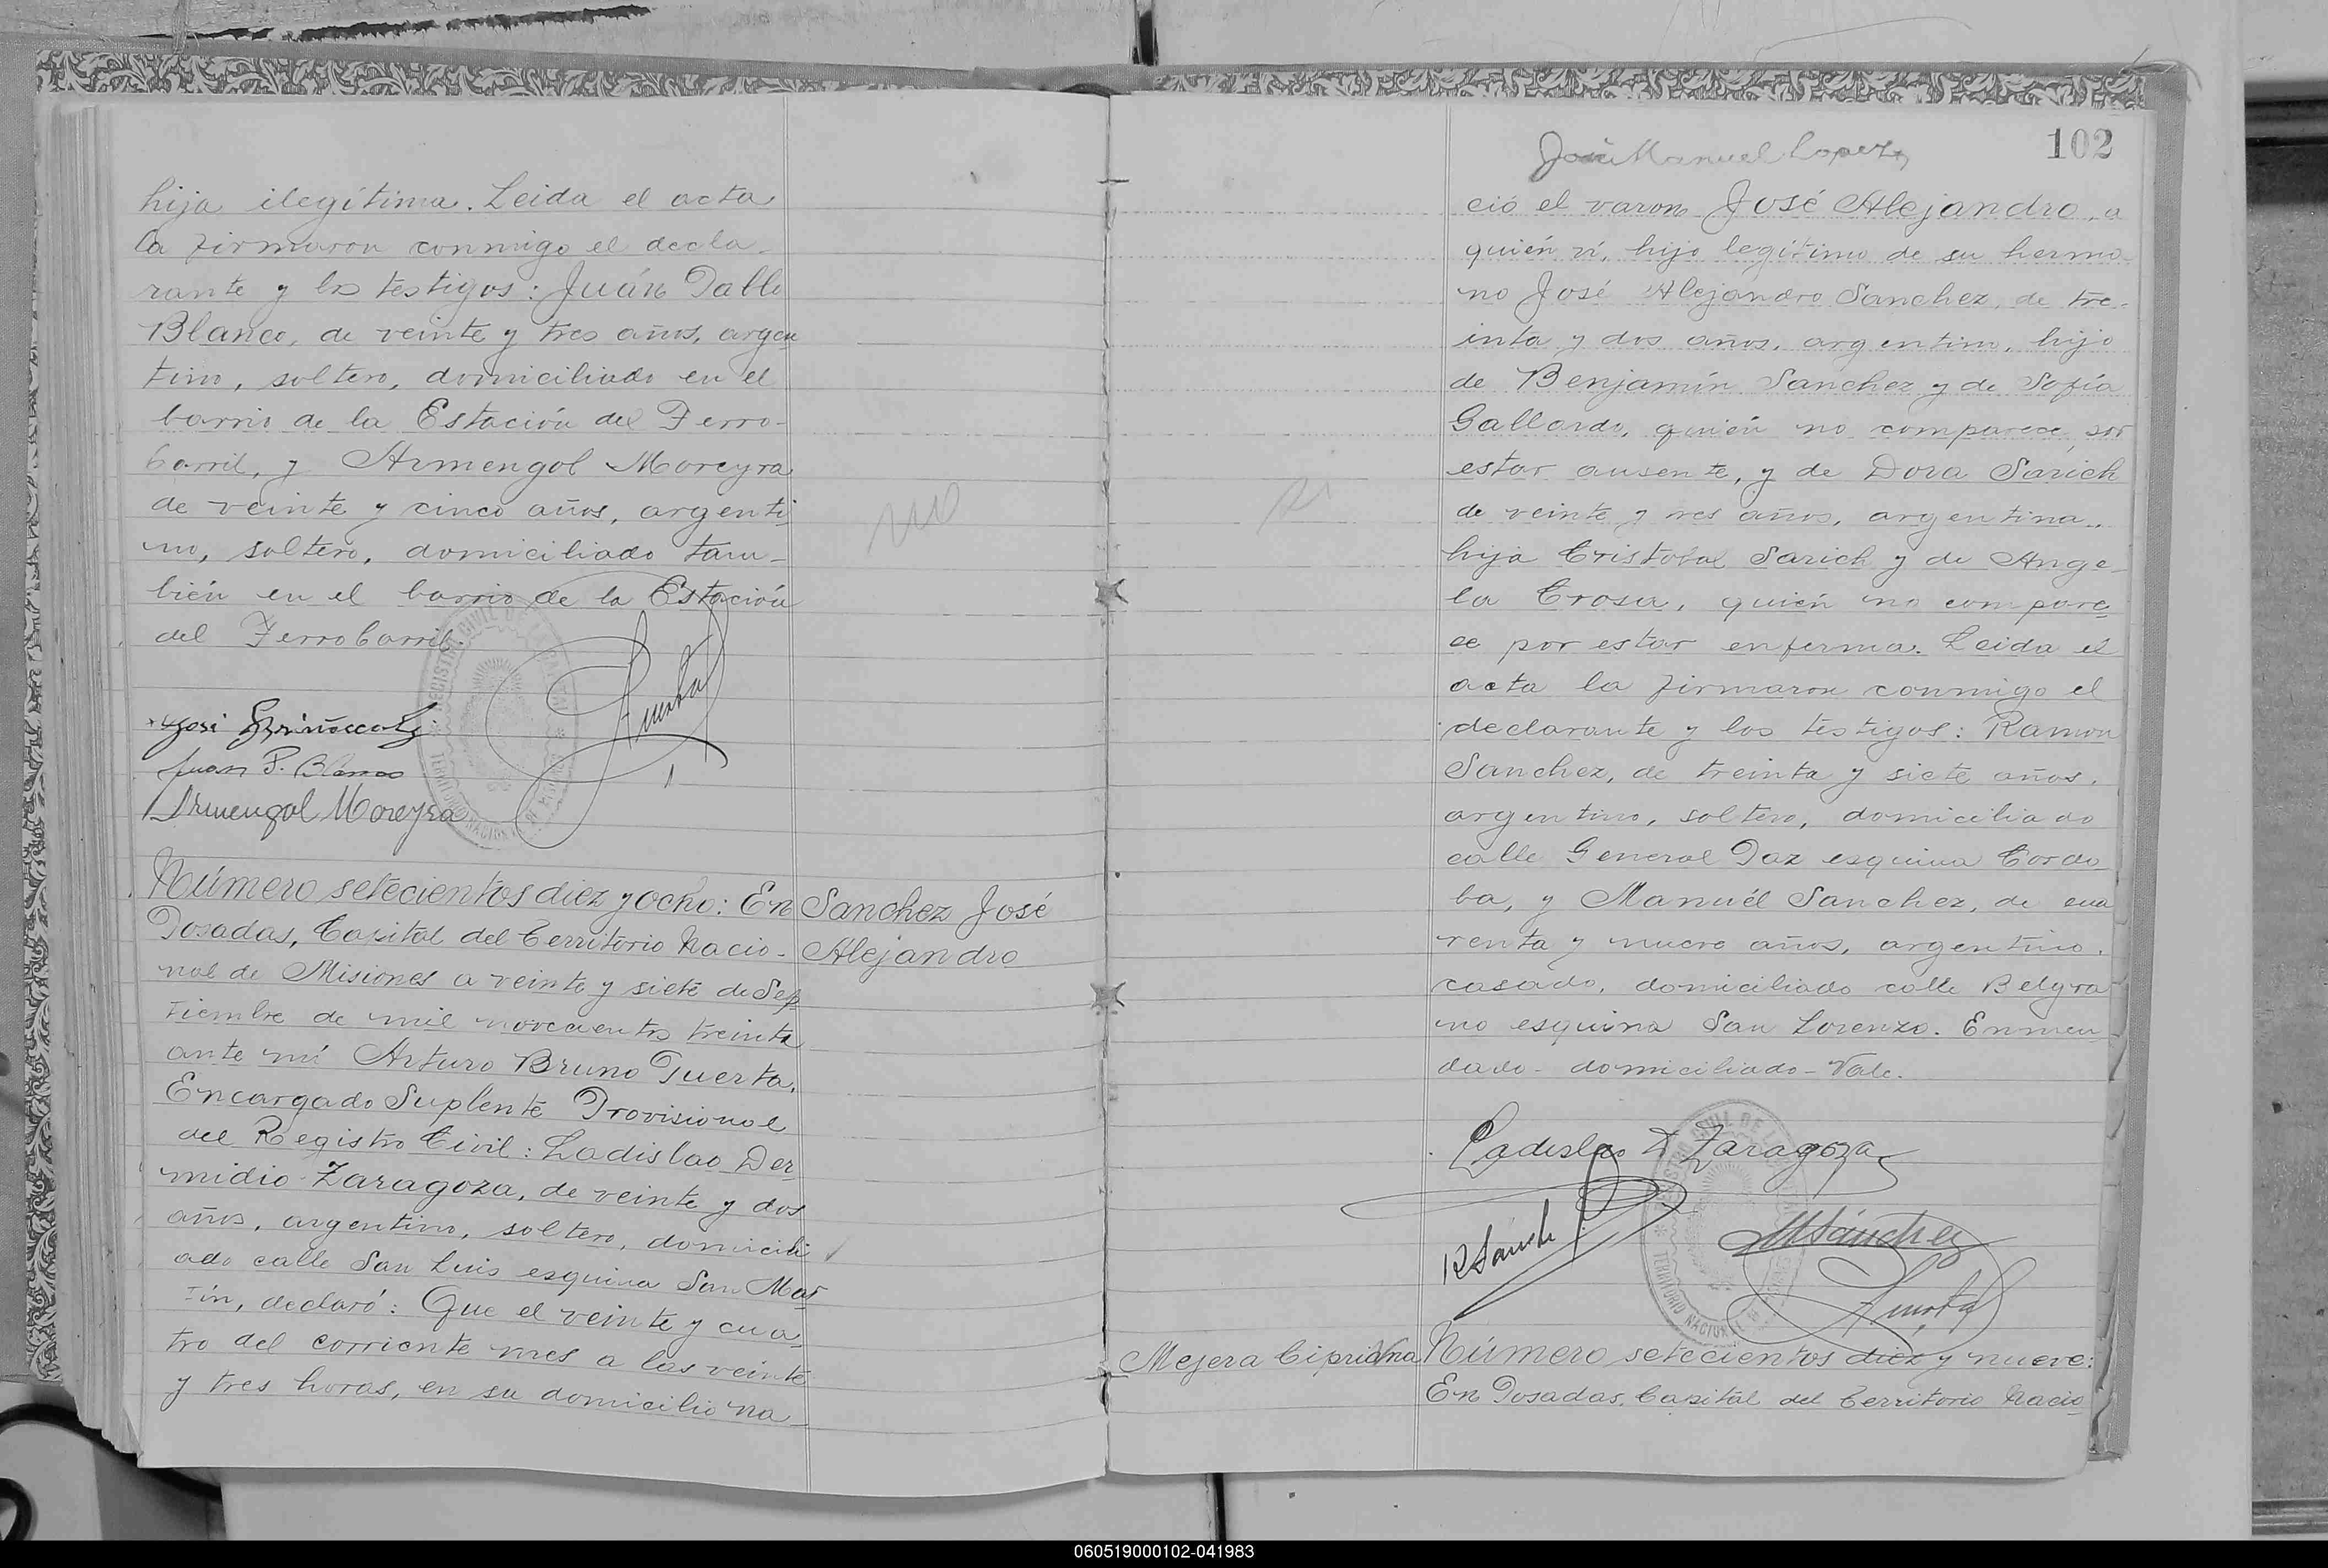 hija ilegítima. Leida el acta
la firmaron conmigo el decla-
rante y los testigos: Juán Pablo
Blanco, de veinte y tres años, argen
tino, soltero, domiciliado en el
barrio de la Estación del Ferro-
Carril, y Armengol Moreyra
de veinte y cinco años, argenti
no, soltero, domiciliado tam-
bién en el barrio de la Estación
del FerroCarril.
REGISTRO CIVIL DE LA CAPITAL
TERRITORIO NACIONAL DE MISIONES
José
Juan P. Blanco
Armengol Moreyra
Número setecientos diez y ocho: En
Posadas, Capital del Territorio Nacio-
nal de Misiones a veinte y siete de Sep
tiembre de mil novecientos treinta
ante mí Arturo Bruno Puerta,
Encargado Suplente Provisional
del Registro Civil: Ladislao Der
midio Zaragoza, de veinte y dos
años, argentino, soltero, domicili
ado calle San Luis esquina San Mar
tín, declaró: Que el veinte y cua
tro del corriente mes a las veinte
y tres horas, en su domicilio na-
Sanchez José
Alejandro
no
José Manuel Lopez
102
ció el varon José Alejandro, a
quién ví, hijo legítimo de su herma-
no José Alejandro Sanchez, de tre-
inta y dos años, argentino, hijo
de Benjamín Sanchez y de Sofía
Gallardo, quién no comparece por
estar ausente, y de Dora Sarich
de veinte y tres años, argentina,
hija Cristobal Sarich y de Ange-
la Crosa, quién no compare
ce por estar enferma. Leida el
acta la firmaron conmigo el
declarante y los testigos: Ramon
Sanchez, de treinta y siete años,
argentino, soltero, domiciliado
calle General Paz esquina Cordo
ba, y Manuél Sanchez, de cua
renta y nueve años, argentino,
casado, domiciliado calle Belgra
no esquina San Lorenzo. Enmen-
dado - domiciliado - Vale.
Ladislao D Zaragoza
R Sánche
MSánchez
Puerta
Mejera Cipriana
Número setecientos diez y nueve:
En Posadas, Capital del Territorio Nacio
060519000102-041983